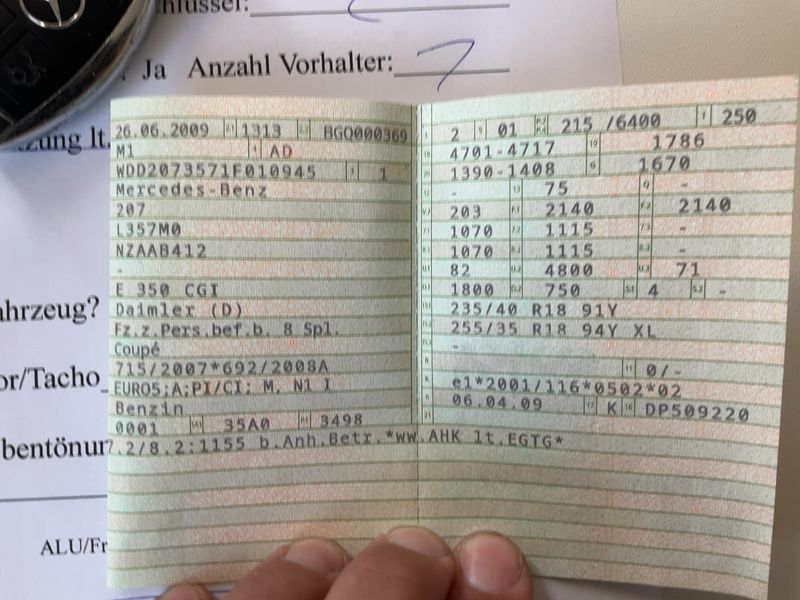 chlüssel:
Ja Anzahl Vorhalter:
zung lt.
26.06.2009 1313 BGQ000369
M1 AD
WDD2073571F010945 1
Mercedes-Benz
207
L357M0
NZAAB412
-
E 350 CGI
Daimler (D)
Fz.z.Pers.bef.b. 8 Spl.
Coupé
715/2007*692/2008A
EURO5;A;PI/CI; M, N1 I
Benzin
0001 35A0 3498
7.2/8.2:1155 b.Anh.Betr.*ww.AHK lt.EGTG*
2 01 215 /6400 250
4701-4717 1786
1390-1408 1670
- 75 -
203 2140 2140
1070 1115 -
1070 1115 -
82 4800 71
1800 750 4 -
235/40 R18 91Y
255/35 R18 94Y XL
-
0/-
e1*2001/116*0502*02
06.04.09 K DP509220
ahrzeug?
or/Tacho
bentönur
ALU/Fr